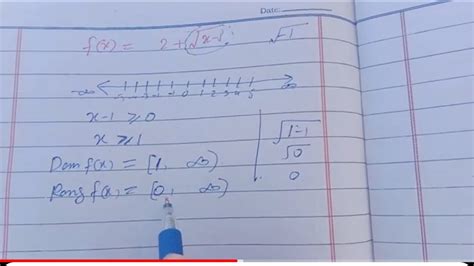 Date:
f(x) = 2 + √x-1
√-1
-∞ ∞
-5 -4 -3 -2 -1 0 1 2 3 4 5
x-1 ≥ 0
x ≥ 1
Dom f(x) = [1, ∞)
Rang f(x) = [0, ∞)
√1-1
√0
0